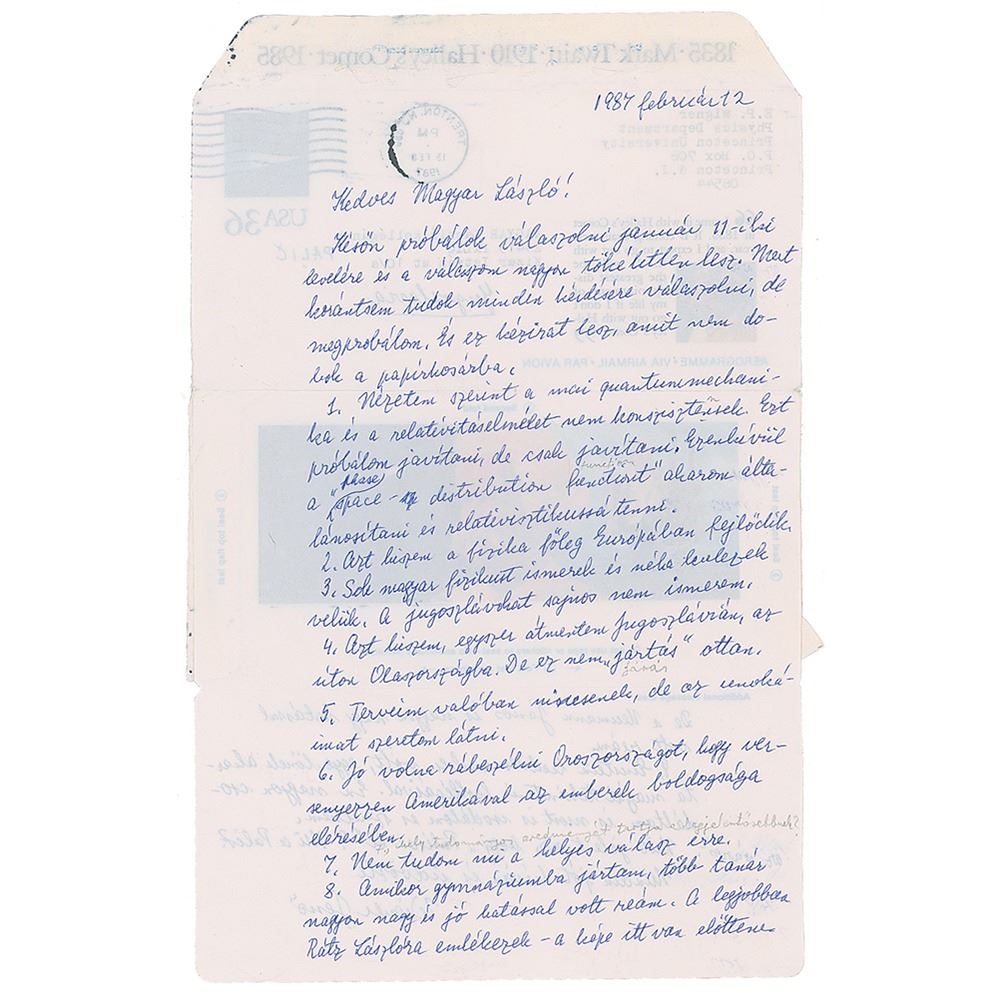 1835 · Mark Twain · 1910 · Halley's Comet · 1985
1987 február 12
E.P. Wigner
Physics Department
Princeton University
P.O. Box 708
Princeton N.J.
08544
TRENTON, NJ
PM
13 FEB
1987
USA 36
Kedves Magyar László!
Későn próbálok válaszolni január 11-élsi
levelére és a válaszom nagyon tökéletlen lesz. Mert
korántsem tudok minden kérdésére válaszolni, de
megprobálom. És ez kézirat lesz, amit nem do-
bok a papírkosárba.
AEROGRAMME · VIA AIRMAIL · PAR AVION
1. Nézetem szerint a mai quantummechani-
ka és a relativitáselmélet nem konszisztensek. Ezt
próbálom javítani, de csak javítani. Ezenkívül
a "phase space distribution function" akarom álta-
lánosítani és relativisztikussá tenni.
2. Azt hiszem a fizika főleg Európában fejlődik.
3. Sok magyar fizikust ismerek és néha levelezek
velük. A jugoszlávokat sajnos nem ismerem.
4. Azt hiszem, egyszer átmentem Jugoszlávián, az
úton Olaszországba. De ez nem "jártás" ottan.
járás
5. Terveim valóban nincsenek, de az unoká-
imat szeretem látni.
6. Jó volna rábeszélni Oroszországot, hogy ver-
senyezzen Amerikával az emberek boldogsága
elérésében.
7, mely tudományos eredményét tartja legjelentősebbnek?
7. Nem tudom mi a helyes válasz erre.
8. Amikor gymnáziumba jártam, több tanár
nagyon nagy és jó hatással volt reám. A legjobban
Rátz Lászlóra emlékezek - a képe itt van előttem